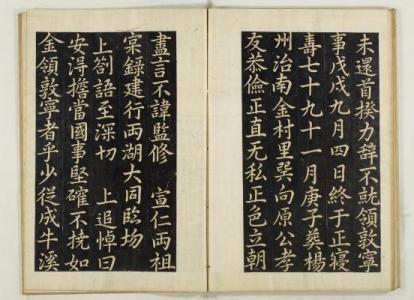 未還首揆力辭不就領敦寧
事戊戌九月四日終于正寢
壽七十九十一月庚子葬楊
州治南金村里巽向原公孝
友恭儉正直无私正色立朝
盡言不諱監修　宣仁兩祖
寀錄建行兩湖大同臨場
上劄語至深切　上追悼曰
安淂擔當國事堅確不撓如
金領敦寧者乎少從成牛溪